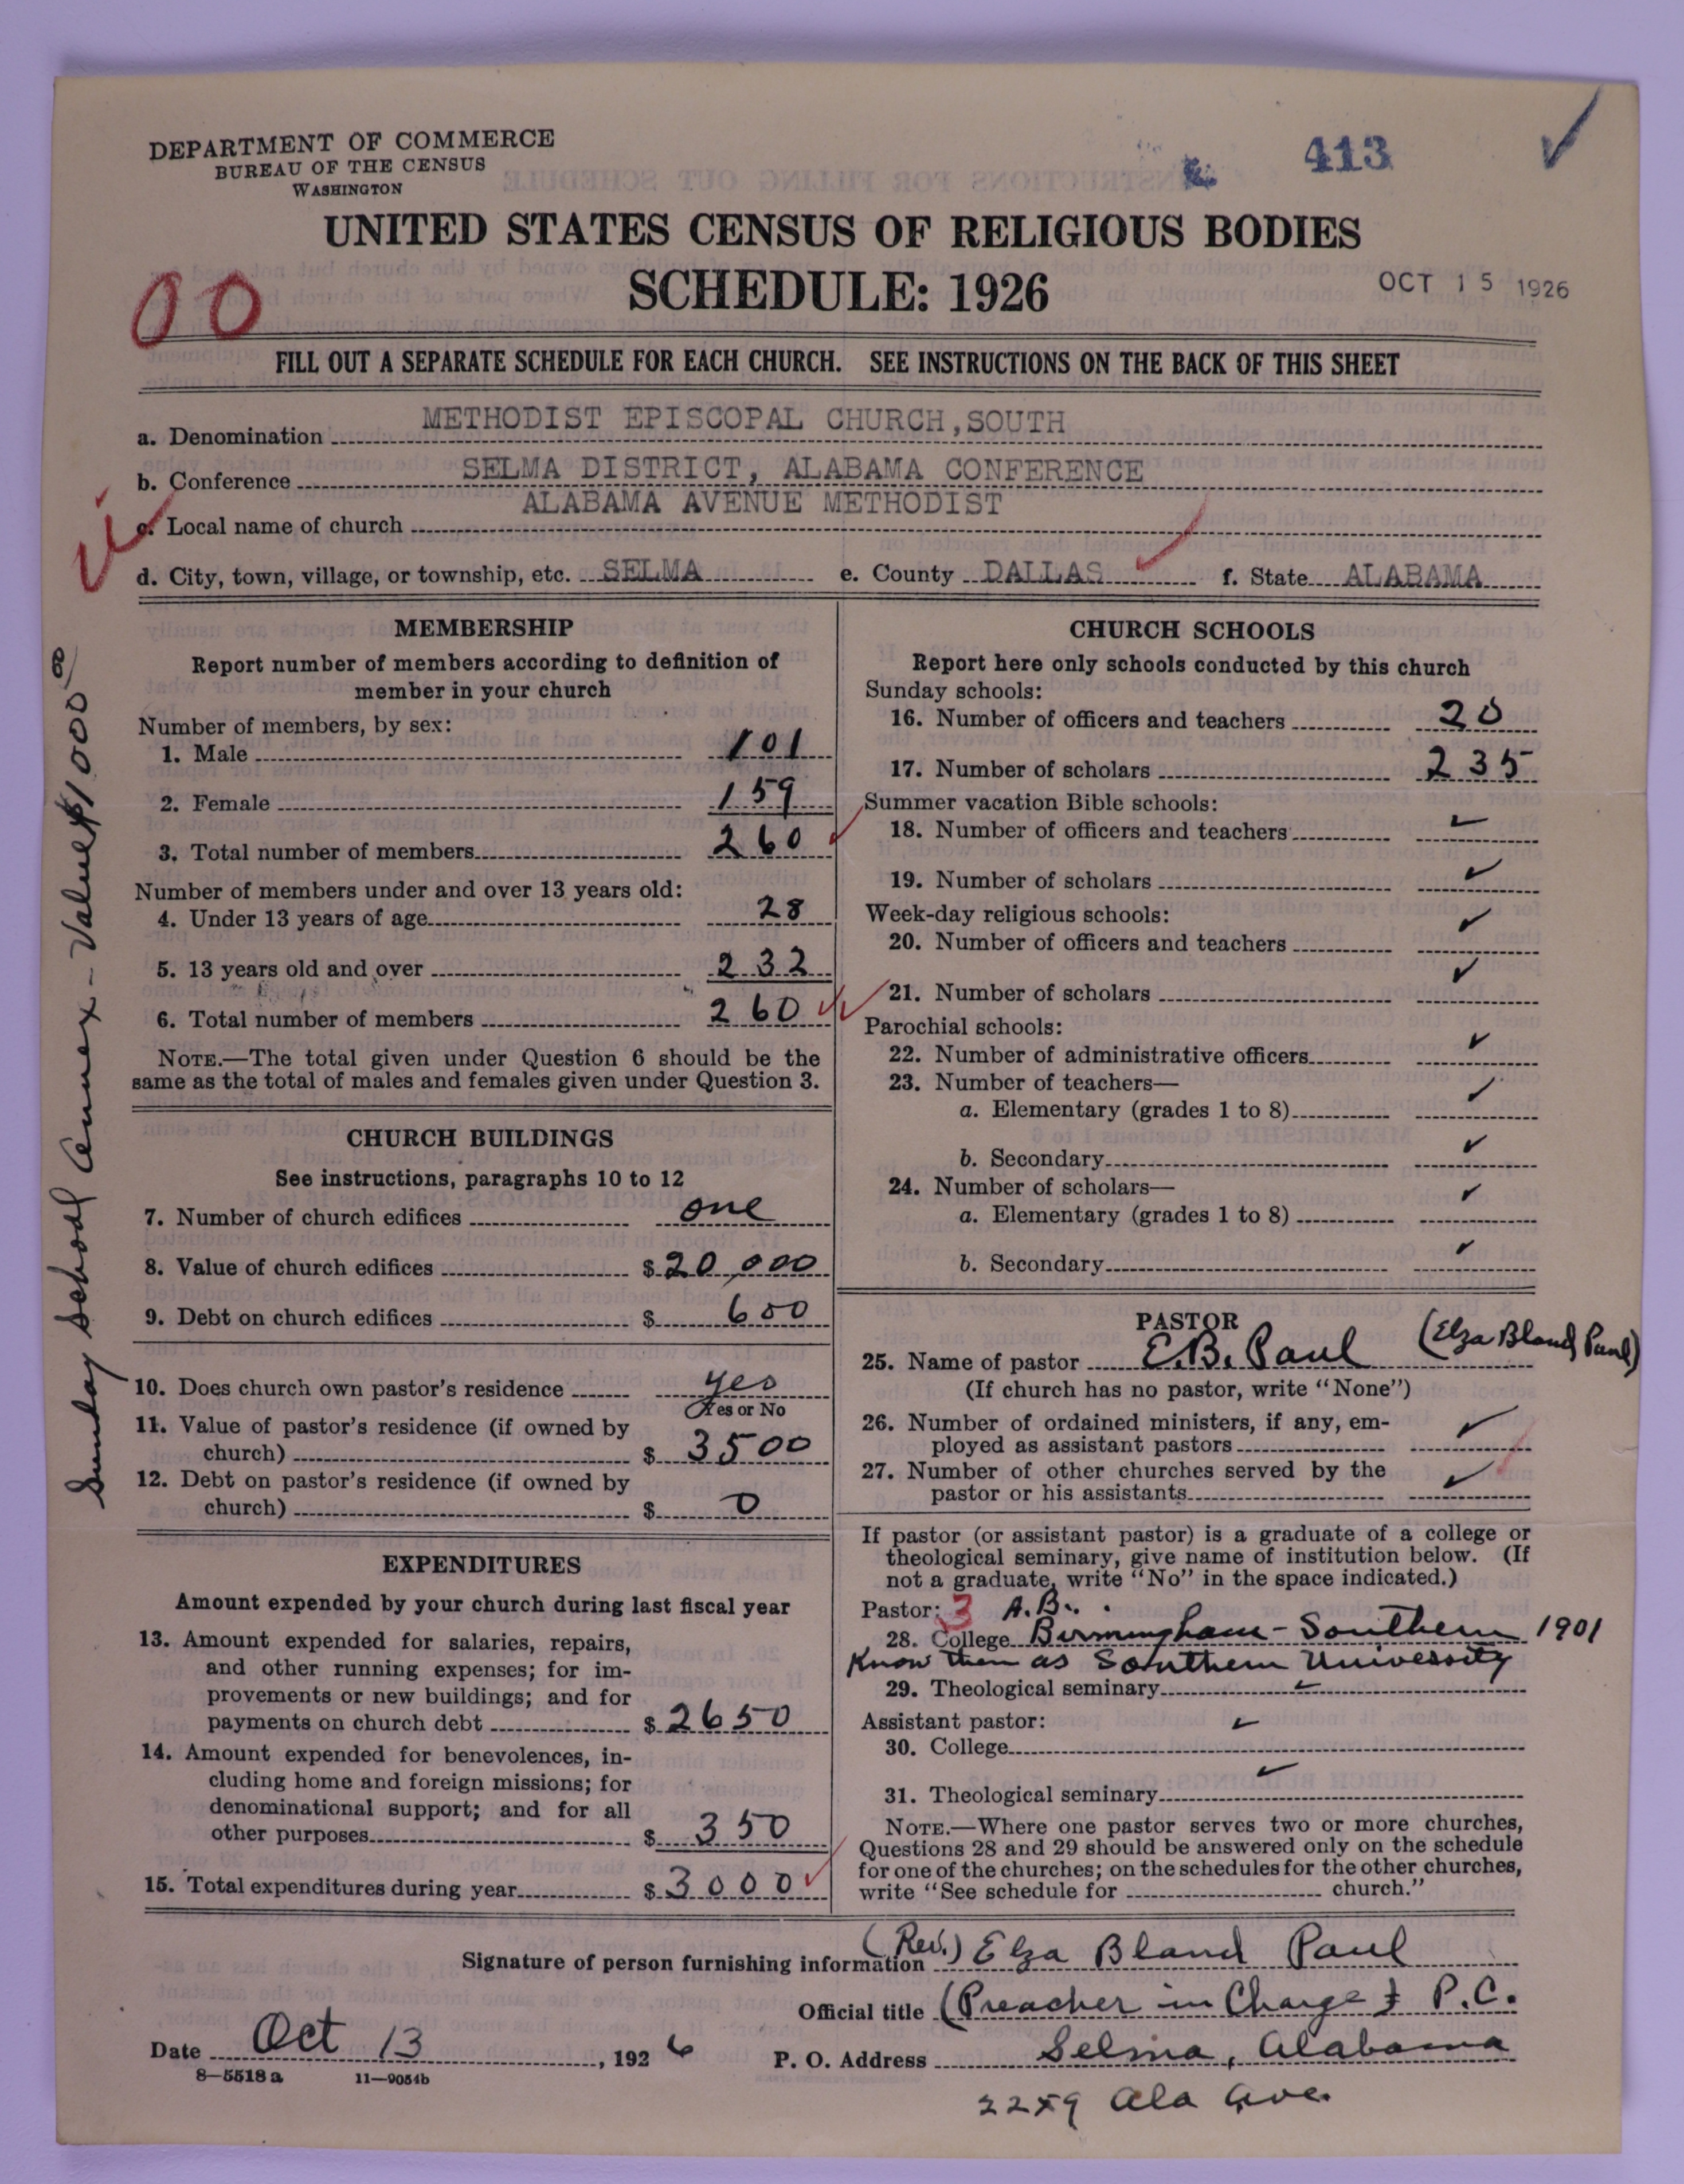 DEPARTMENT OF COMMERCE
BUREAU OF THE CENSUS
WASHINGTON
413
UNITED STATES CENSUS OF RELIGIOUS BODIES
SCHEDULE: 1926
OCT 15 1926
00
FILL OUT A SEPARATE SCHEDULE FOR EACH CHURCH. SEE INSTRUCTIONS ON THE BACK OF THIS SHEET
a. Denomination METHODIST EPISCOPAL CHURCH,SOUTH
b. Conference SELMA DISTRICT, ALABAMA CONFERENCE
c. Local name of church ALABAMA AVENUE METHODIST
d. City, town, village, or township, etc. SELMA e. County DALLAS f. State ALABAMA
Sunday School Annex - Value $1000
MEMBERSHIP
Report number of members according to definition of
member in your church
Number of members, by sex:
1. Male 101
2. Female 159
3. Total number of members 260
Number of members under and over 13 years old:
4. Under 13 years of age 28
5. 13 years old and over 232
6. Total number of members 260
NOTE.—The total given under Question 6 should be the
same as the total of males and females given under Question 3.
CHURCH BUILDINGS
See instructions, paragraphs 10 to 12
7. Number of church edifices one
8. Value of church edifices $ 20,000
9. Debt on church edifices $ 600
10. Does church own pastor's residence yes
Yes or No
11. Value of pastor's residence (if owned by
church) $ 3500
12. Debt on pastor's residence (if owned by
church) $ 0
EXPENDITURES
Amount expended by your church during last fiscal year
13. Amount expended for salaries, repairs,
and other running expenses; for im-
provements or new buildings; and for
payments on church debt $ 2650
14. Amount expended for benevolences, in-
cluding home and foreign missions; for
denominational support; and for all
other purposes $ 350
15. Total expenditures during year $ 3000
CHURCH SCHOOLS
Report here only schools conducted by this church
Sunday schools:
16. Number of officers and teachers 20
17. Number of scholars 235
Summer vacation Bible schools:
18. Number of officers and teachers
19. Number of scholars
Week-day religious schools:
20. Number of officers and teachers
21. Number of scholars
Parochial schools:
22. Number of administrative officers
23. Number of teachers—
a. Elementary (grades 1 to 8)
b. Secondary
24. Number of scholars—
a. Elementary (grades 1 to 8)
b. Secondary
PASTOR
25. Name of pastor E.B. Paul (Elza Bland Paul)
(If church has no pastor, write "None")
26. Number of ordained ministers, if any, em-
ployed as assistant pastors
27. Number of other churches served by the
pastor or his assistants
If pastor (or assistant pastor) is a graduate of a college or
theological seminary, give name of institution below. (If
not a graduate, write "No" in the space indicated.)
Pastor: 3 A.B.
28. College Birmingham-Southern 1901
Know then as Southern University
29. Theological seminary
Assistant pastor:
30. College
31. Theological seminary
NOTE.—Where one pastor serves two or more churches,
Questions 28 and 29 should be answered only on the schedule
for one of the churches; on the schedules for the other churches,
write "See schedule for church."
Signature of person furnishing information (Rev.) Elza Bland Paul
Official title (Preacher in Charge) P.C.
Date Oct 13, 1926
P. O. Address Selma, Alabama
8—5518 a 11—9051b
2259 Ala Ave.